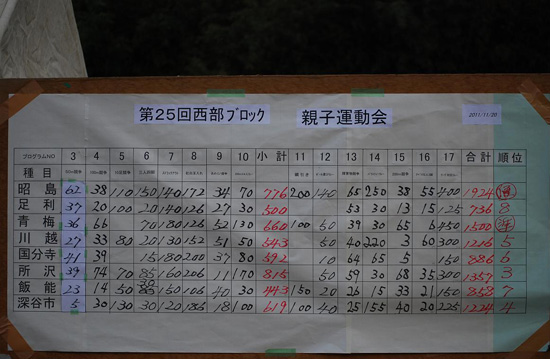 第25回西部ブロック 親子運動会
2011/11/20
プログラムNO 3 4 5 6 7 8 9 10 小計 11 12 13 14 15 16 17 合計 順位
種目
昭島 62 38 110 150 140 172 34 70 776 200 140 65 250 38 55 400 1924
足利 37 20 100 20 140 126 27 30 500 53 30 13 15 125 736 8
青梅 36 66 70 180 126 52 130 660 100 50 39 30 65 6 450 1500
川越 27 33 80 20 130 152 51 50 543 50 40 220 3 60 300 1216 5
国分寺 41 39 15 180 200 37 80 592 10 64 65 5 150 886 6
所沢 39 74 70 85 160 206 11 170 815 50 59 30 68 35 300 1357 3
飯能 23 14 50 150 106 40 30 443 150 20 26 15 33 21 150 858 7
深谷市 5 30 130 30 120 186 18 100 619 100 40 25 155 40 20 225 1224 4